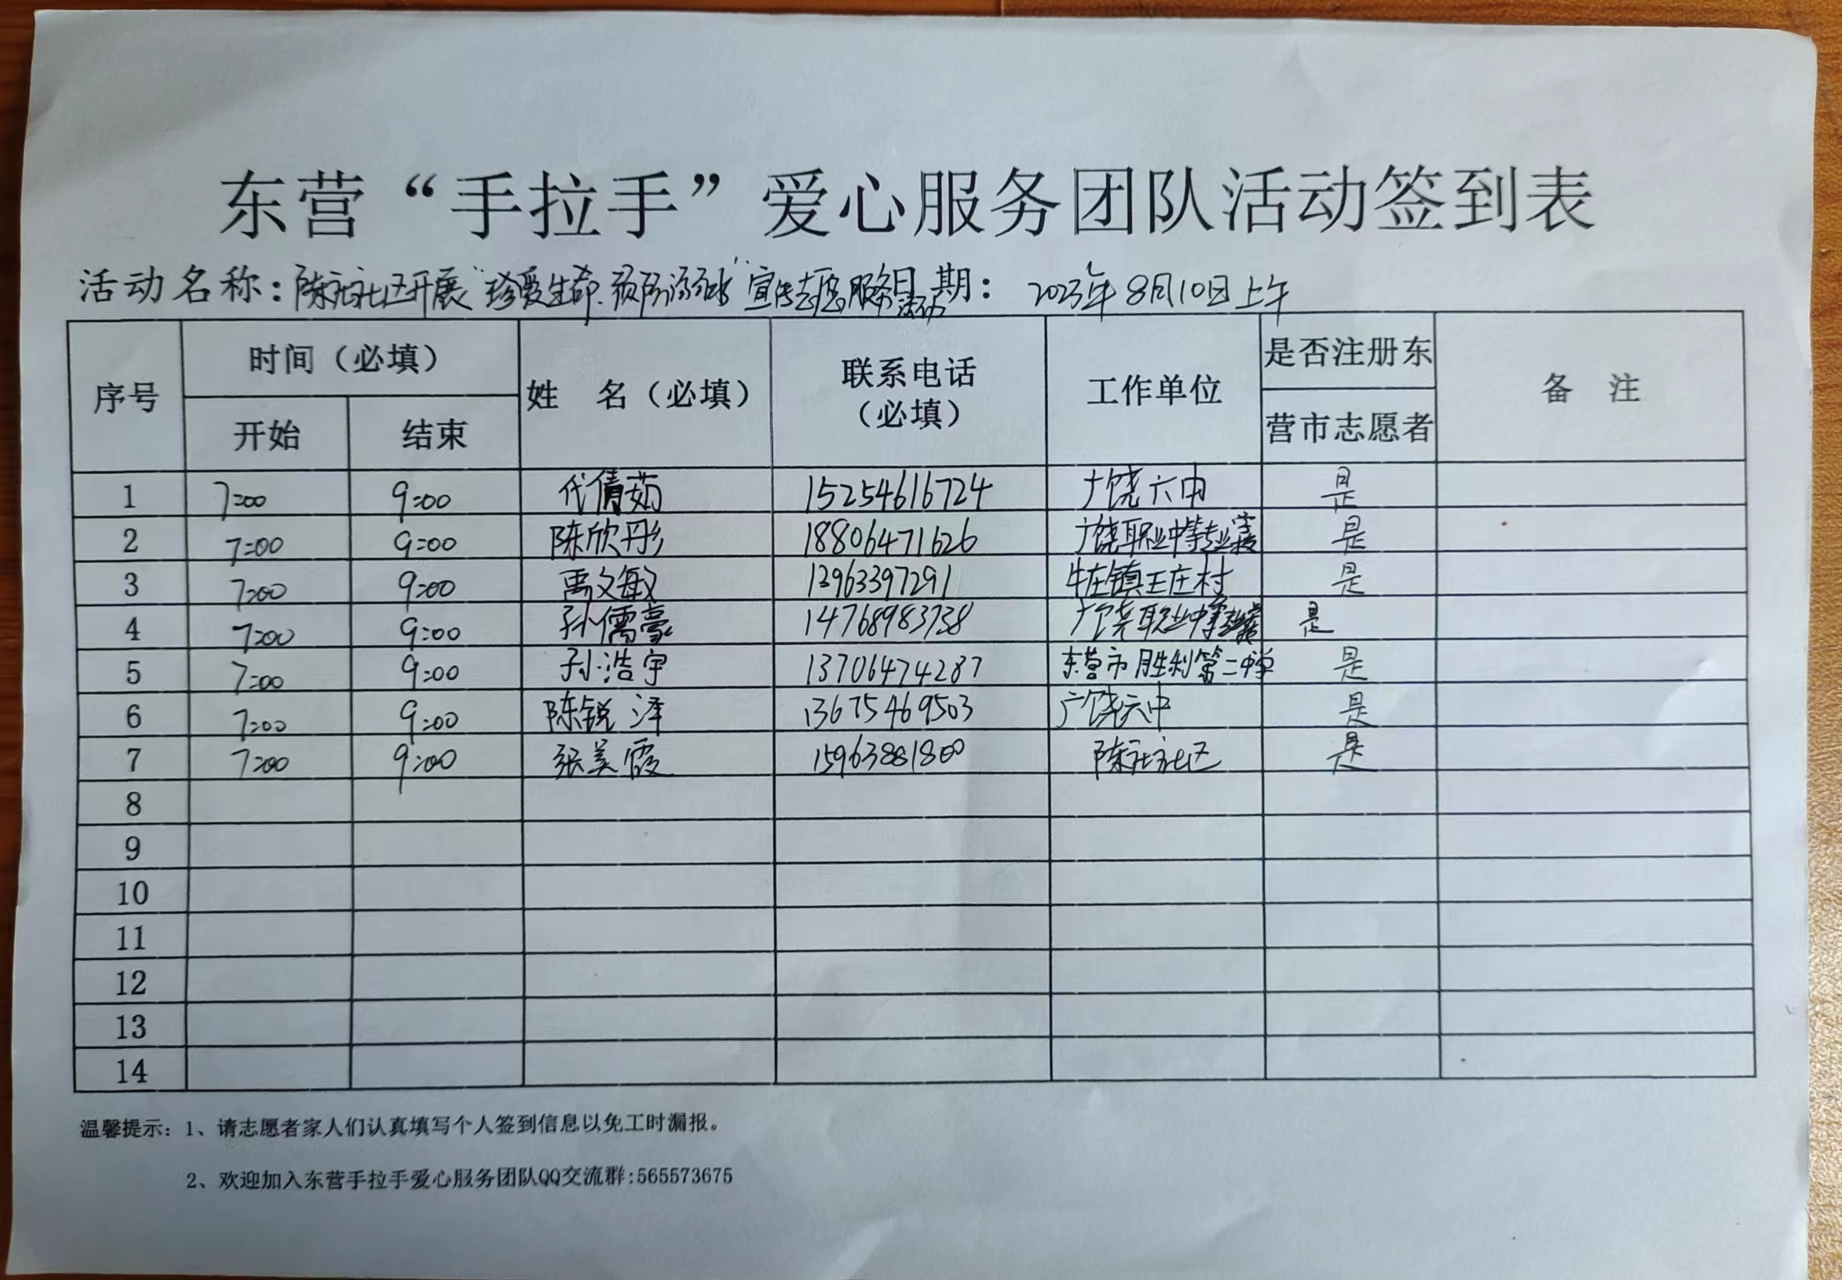 东营“手拉手”爱心服务团队活动签到表
活动名称：陈社区开展“珍爱生命.预防溺水”宣传志愿服务活动 日期： 2023年8月10日上午
序号 时间（必填） 姓 名（必填） 联系电话（必填） 工作单位 是否注册东营市志愿者 备 注
开始 结束
1 7:00 9:00 代倩茹 15254616724 广饶六中 是
2 7:00 9:00 陈欣彤 18806471626 广饶职业中等专业 是
3 7:00 9:00 禹文敏 13963397291 牛庄镇王庄村 是
4 7:00 9:00 孙儒豪 14768983738 广饶职业中等 是
5 7:00 9:00 孙浩宇 13706474287 东营市胜利第二中学 是
6 7:00 9:00 陈锐泽 13675469503 广饶六中 是
7 7:00 9:00 张美霞 15963881800 社区 是
8
9
10
11
12
13
14
温馨提示：1、请志愿者家人们认真填写个人签到信息以免工时漏报。
2、欢迎加入东营手拉手爱心服务团队QQ交流群:565573675